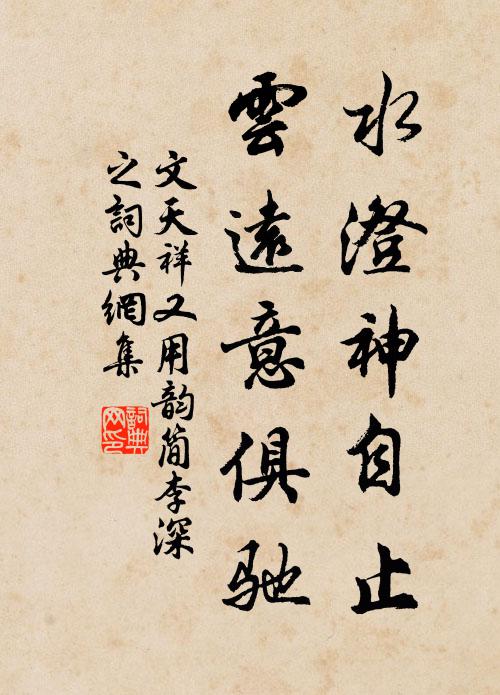 水澄神自止
雲遠意俱驰
文天祥又用韵简李深
之詞典網集
詞典
网印